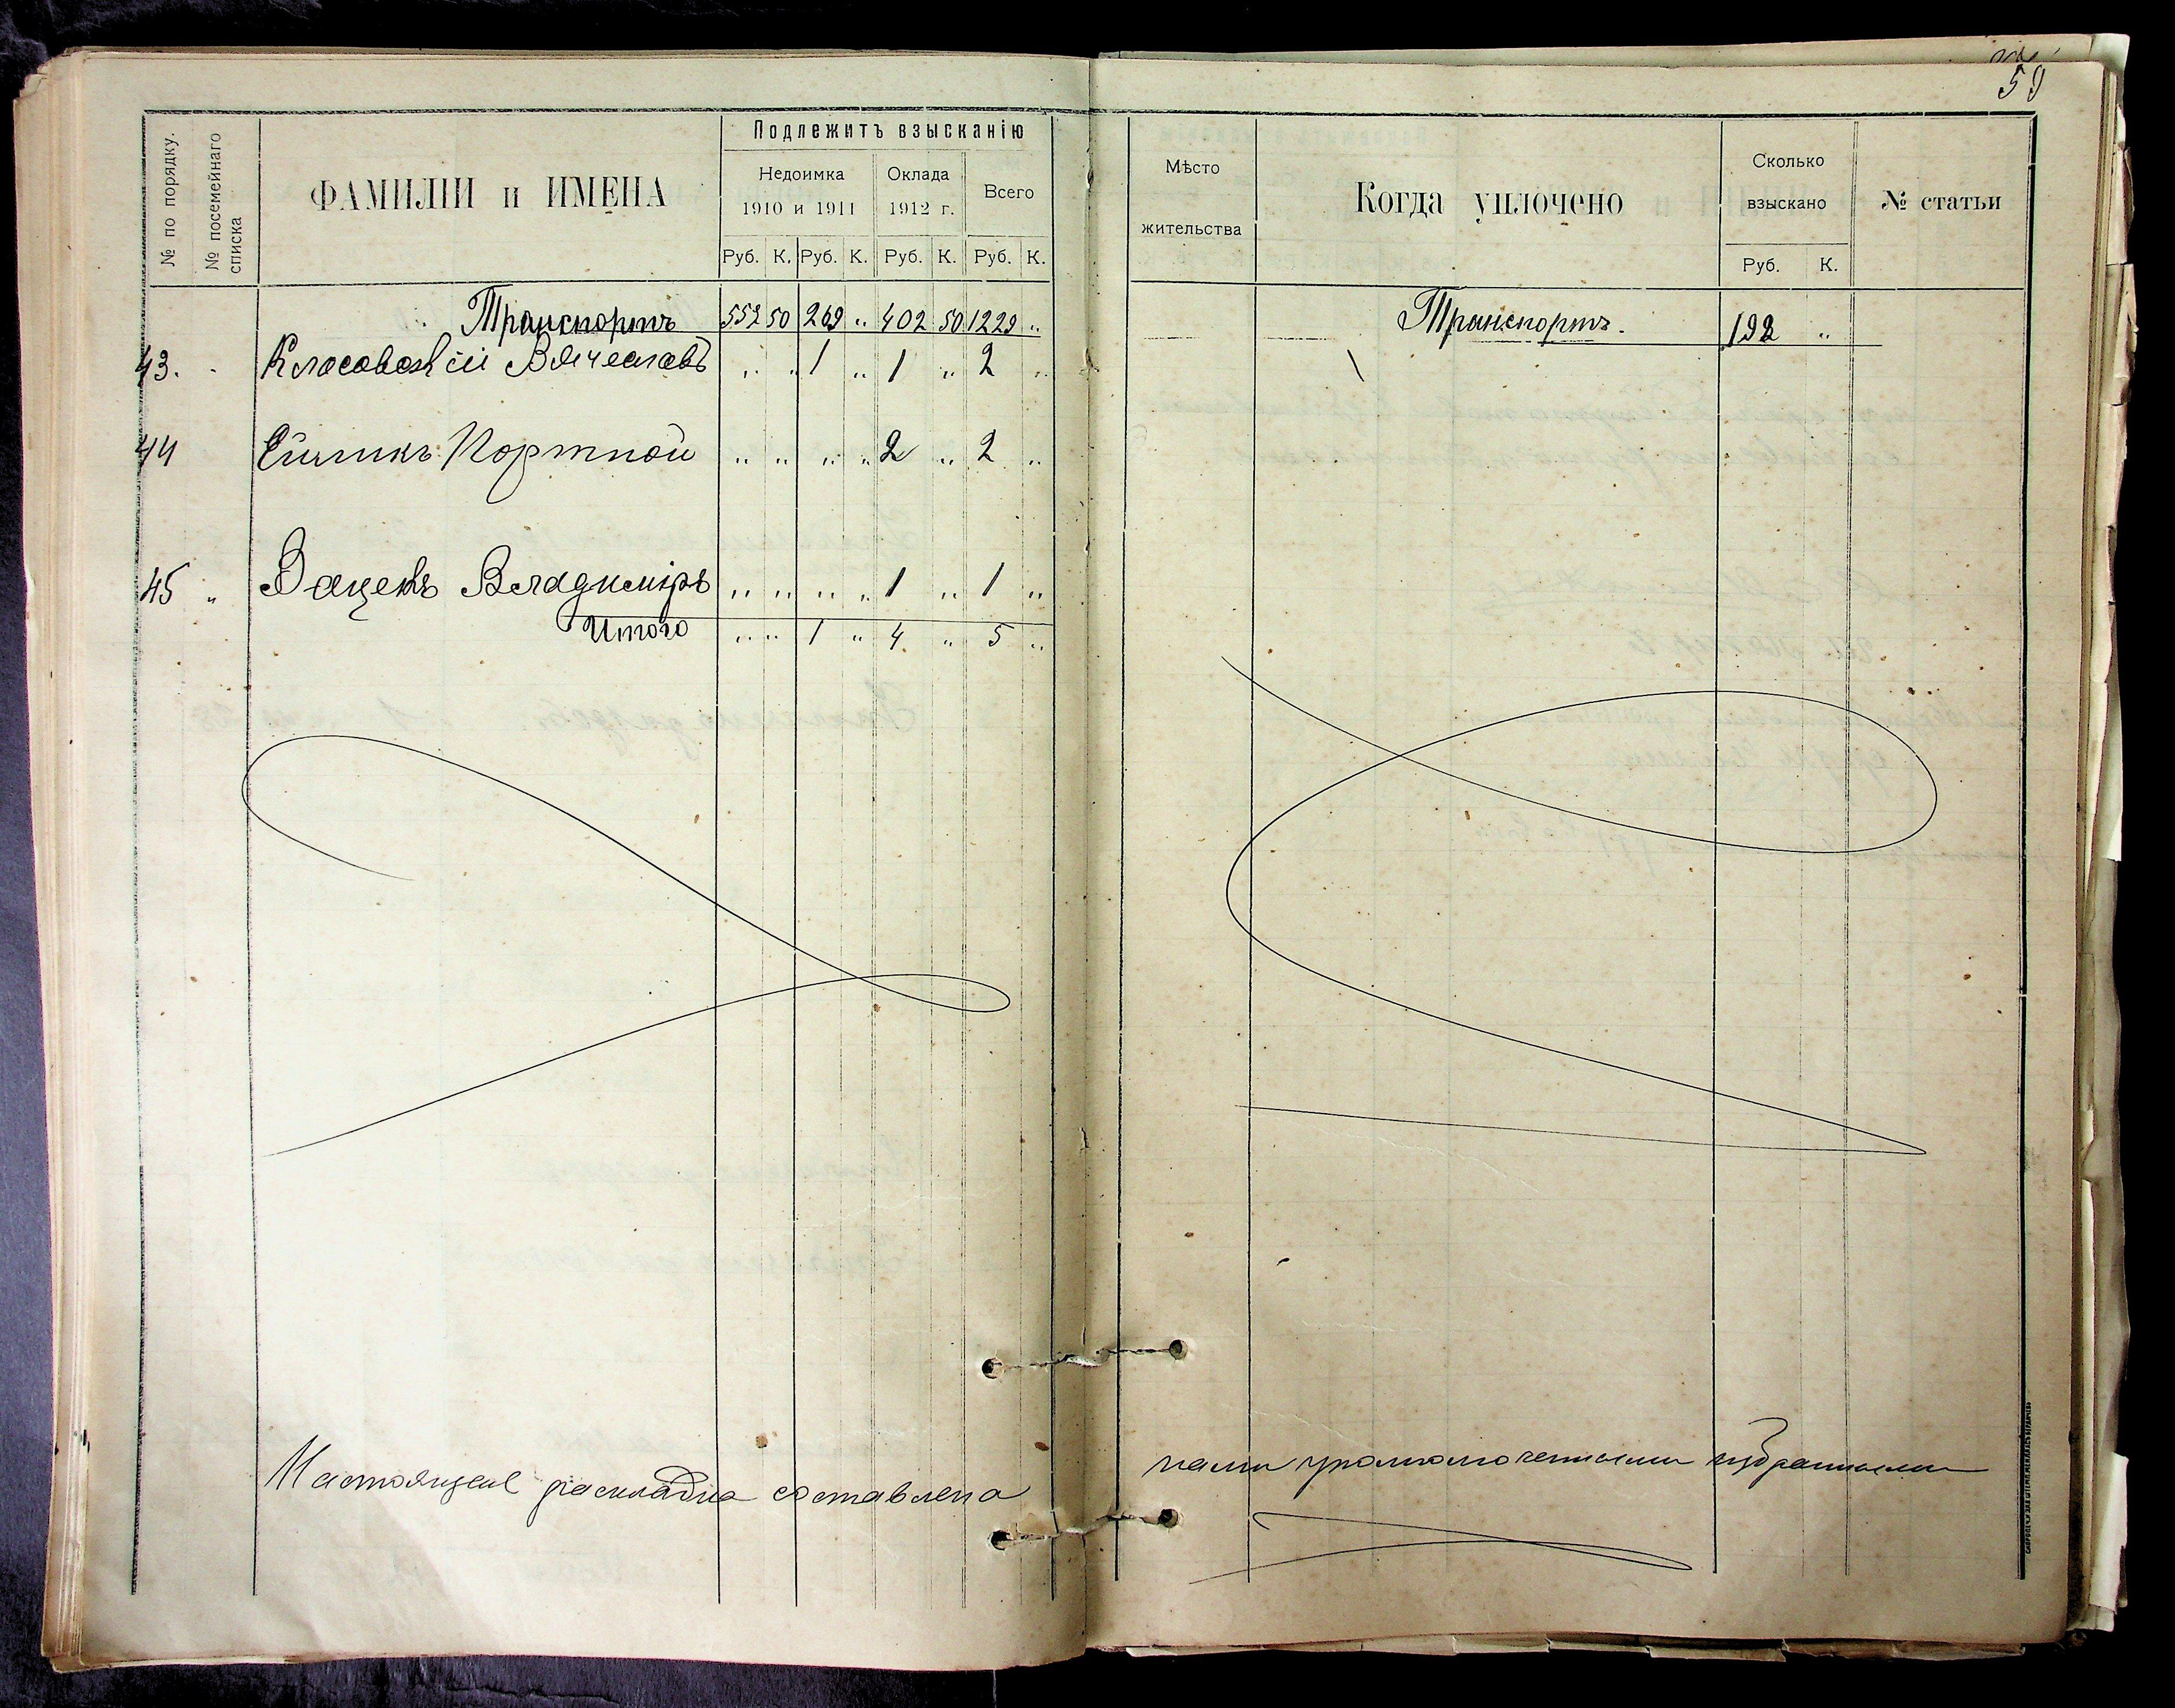 59
№ по порядку.
№ посемейнаго списка
ФАМИЛІИ и ИМЕНА
Подлежитъ взысканію
Недоимка 1910 и 1911
Оклада 1912 г.
Всего
Руб. К. Руб. К. Руб. К. Руб. К.
Мѣсто жительства
Когда уплочено
Сколько взыскано
Руб. К.
№ статьи
Транспортъ 552 50 269 " 402 50 1229 "
Транспортъ. 192 "
43. Класовскій Вячеславъ " " 1 " 1 " 2 "
44 Портной " " " " 2 " 2 "
45 " Зацепъ Владиміръ " " " " 1 " 1 "
Итого " " 1 " 4 " 5 "
Настоящая раскладка составлена
нами уполномоченными избранными